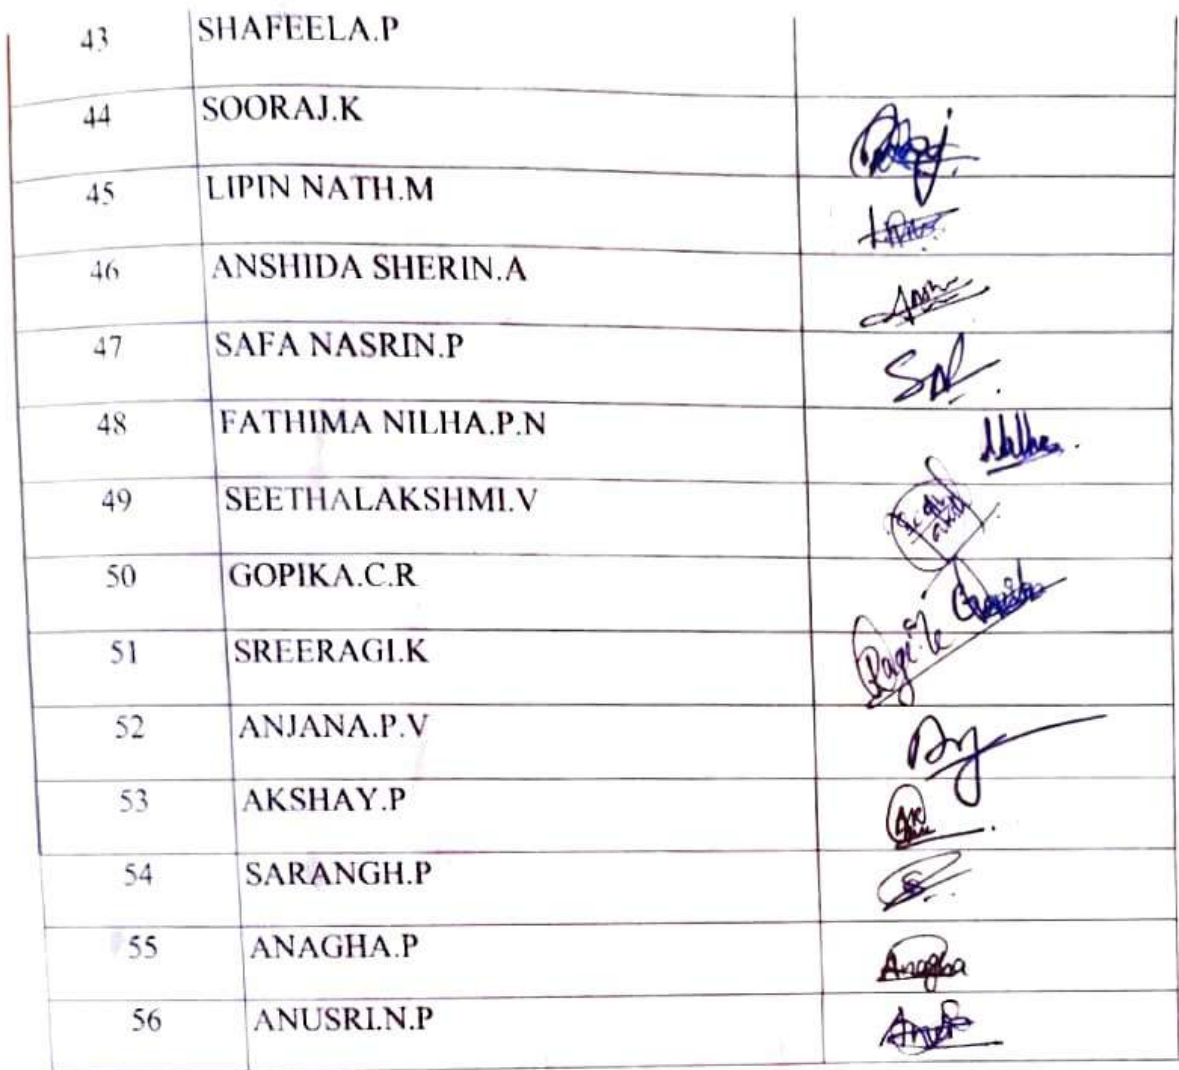 43 SHAFEELA.P
44 SOORAJ.K
45 LIPIN NATH.M
46 ANSHIDA SHERIN.A
47 SAFA NASRIN.P
48 FATHIMA NILHA.P.N
49 SEETHALAKSHMI.V
50 GOPIKA.C.R
51 SREERAGI.K
52 ANJANA.P.V
53 AKSHAY.P
54 SARANGH.P
55 ANAGHA.P Anagha
56 ANUSRI.N.P